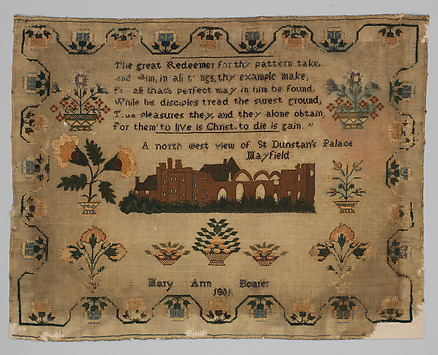 The great Redeemer for thy pattern take,
and in all thy example make,
all that's perfect may in him be found.
While his disciples tread the surest ground,
True pleasures they, and they alone obtain,
For them "to live is Christ, to die is gain."
A north west view of St Dunstan's Palace
Mayfield
Mary Ann